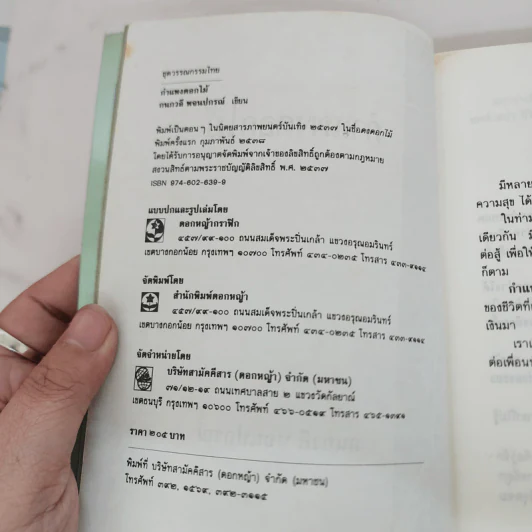 ชุดวรรณกรรมไทย
กำแพงดอกไม้
กนกวลี พจนปกรณ์ เขียน
พิมพ์เป็นตอนๆ ในนิตยสารภาพยนตร์บันเทิง ๒๕๓๗ ในชื่อดงดอกไม้
พิมพ์ครั้งแรก กุมภาพันธ์ ๒๕๓๘
โดยได้รับการอนุญาตจัดพิมพ์จากเจ้าของลิขสิทธิ์ถูกต้องตามกฎหมาย
สงวนสิทธิ์ตามพระราชบัญญัติลิขสิทธิ์ พ.ศ. ๒๕๓๗
ISBN 974-602-639-9
แบบปกและรูปเล่มโดย
ดอกหญ้ากราฟิก
๔๕๗/๙๙-๑๐๐ ถนนสมเด็จพระปิ่นเกล้า แขวงอรุณอมรินทร์
เขตบางกอกน้อย กรุงเทพฯ ๑๐๗๐๐ โทรศัพท์ ๔๓๔-๐๒๓๕ โทรสาร ๔๓๓-๙๑๑๔
จัดพิมพ์โดย
สำนักพิมพ์ดอกหญ้า
๔๕๗/๙๙-๑๐๐ ถนนสมเด็จพระปิ่นเกล้า แขวงอรุณอมรินทร์
เขตบางกอกน้อย กรุงเทพฯ ๑๐๗๐๐ โทรศัพท์ ๔๓๔-๐๒๓๕ โทรสาร ๔๓๓-๙๑๑๔
จัดจำหน่ายโดย
บริษัทสามัคคีสาร (ดอกหญ้า) จำกัด (มหาชน)
๗๑/๑๒-๑๙ ถนนเทศบาลสาย ๒ แขวงวัดกัลยาณ์
เขตธนบุรี กรุงเทพฯ ๑๐๖๐๐ โทรศัพท์ ๔๖๖-๐๕๑๙ โทรสาร
ราคา ๒๐๕ บาท
พิมพ์ที่ บริษัทสามัคคีสาร (ดอกหญ้า) จำกัด (มหาชน)
โทรศัพท์ ๓๙๒, ๑๕๖๙, ๓๙๒-๓๑๑๕
มีหลาย
ความสุข ได้
ในท่าม
เดียวกัน
ต่อสู้ เพื่อให้
ก็ตาม
กำแ
ของชีวิตที่
เงินมา
เราเ
ต่อเพื่อนม